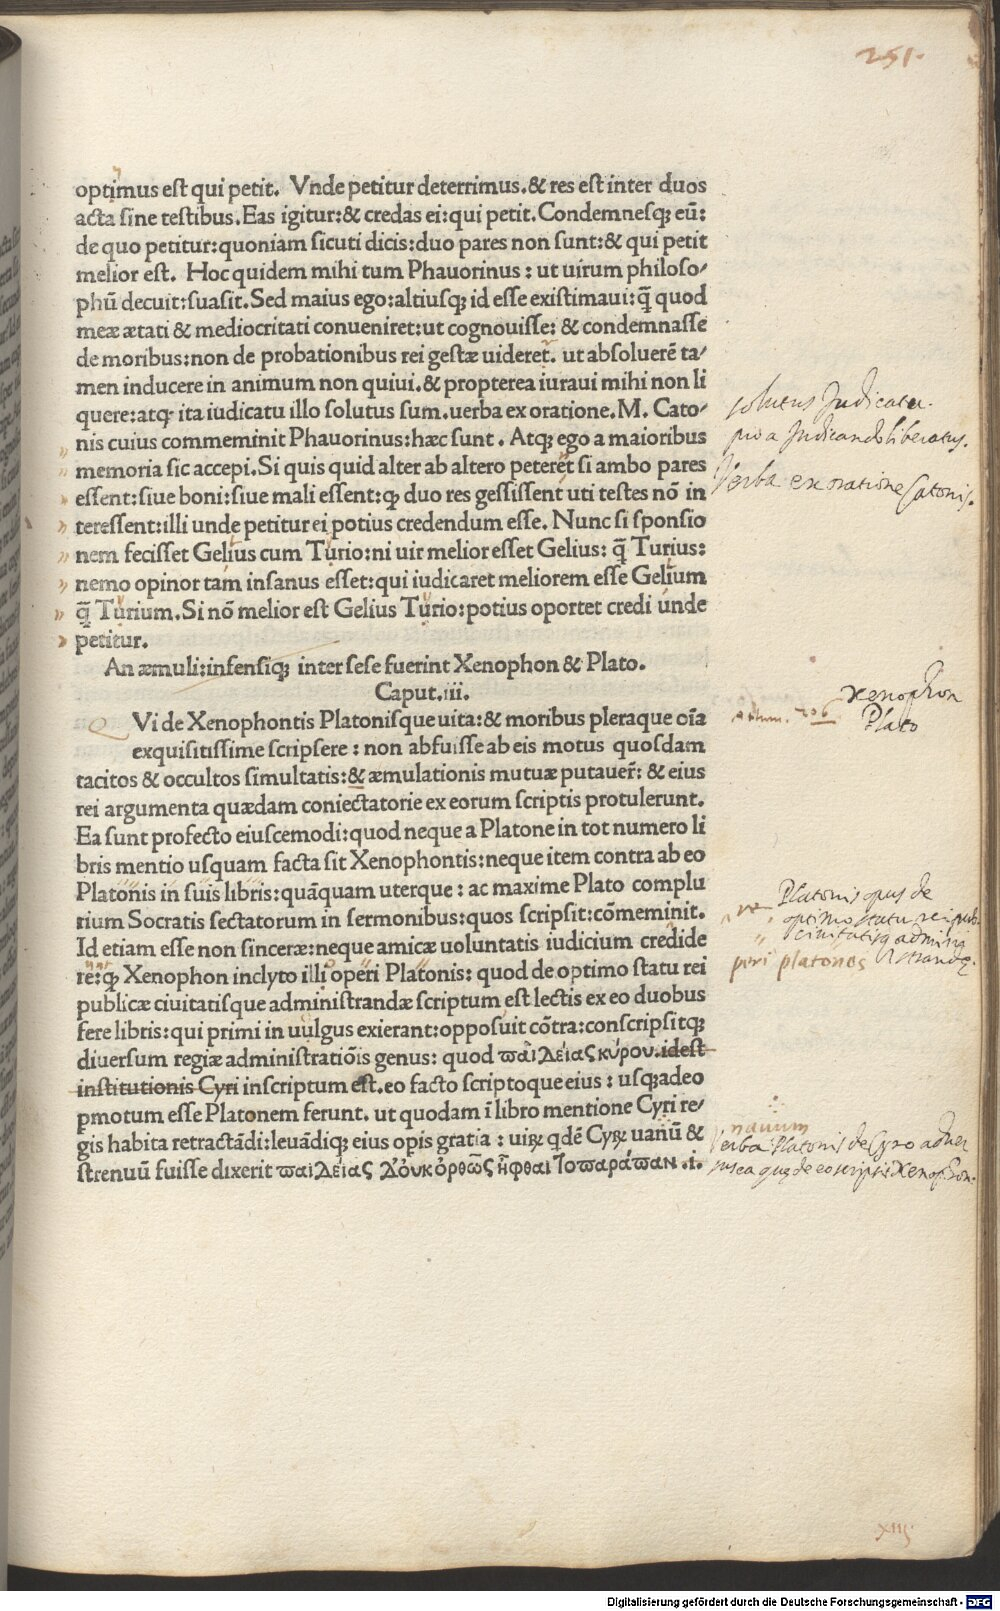 251.
optimus est qui petit. Vnde petitur deterrimus.& res est inter duos
acta sine testibus.Eas igitur:& credas ei:qui petit.Condemnesqꝫ eū:
de quo petitur:quoniam sicuti dicis:duo pares non sunt:& qui petit
melior est. Hoc quidem mihi tum Phauorinus : ut uirum philoso/
phū decuit:suasit.Sed maius ego:altiusqꝫ id esse existimaui:q̄ quod
meæ ætati & mediocritati conueniret:ut cognouisse: & condemnasse
de moribus:non de probationibus rei gestæ uideret. ut absoluerē ta/
men inducere in animum non quiui.& propterea iuraui mihi non li
quere:atqꝫ ita iudicatu illo solutus sum.uerba ex oratione.M. Cato/
solutus Judicatu.
pro a Judicando liberatus.
nis cuius commeminit Phauorinus:hæc sunt . Atqꝫ ego a maioribus
memoria sic accepi.Si quis quid alter ab altero peteret si ambo pares
Verba ex oratione Catonis.
essent:siue boni:siue mali essent:ꝙ duo res gessissent uti testes nō in
teressent:illi unde petitur ei potius credendum esse. Nunc si sponsio
nem fecisset Gelius cum Turio:ni uir melior esset Gelius: q̄ Turius:
nemo opinor tam insanus esset:qui iudicaret meliorem esse Gelium
q̄ Turium.Si nō melior est Gelius Turio:potius oportet credi unde
petitur.
An æmuli:infensiqꝫ inter sese fuerint Xenophon & Plato.
Caput.iii.
Xenophon
Plato
Q Vi de Xenophontis Platonisque uita:& moribus pleraque oīa
exquisitissime scripsere : non abfuisse ab eis motus quosdam
tacitos & occultos simultatis:& æmulationis mutuæ putauer̄: & eius
rei argumenta quædam coniectatorie ex eorum scriptis protulerunt.
Ea sunt profecto eiuscemodi:quod neque a Platone in tot numero li
bris mentio usquam facta sit Xenophontis:neque item contra ab eo
Platonis in suis libris:quāquam uterque : ac maxime Plato complu
rium Socratis sectatorum in sermonibus:quos scripsit:cōmeminit.
Platonis opus de
optimo statu rei pub.
Id etiam esse non sinceræ:neque amicæ uoluntatis iudicium credide
re:ꝙ Xenophon inclyto illi operi Platonis: quod de optimo statu rei
publicæ ciuitatisque administrandæ scriptum est lectis ex eo duobus
fere libris:qui primi in uulgus exierant:opposuit cōtra:conscripsitqꝫ
diuersum regiæ administratiōis genus: quod παιδείας κύρου.idest
institutionis Cyri inscriptum est.eo facto scriptoque eius : usqꝫadeo
pmotum esse Platonem ferunt. ut quodam ī libro mentione Cyri re/
gis habita retractādi:leuādiqꝫ eius opis gratia : uiꝝ qdē Cyꝝ uanū &
nauum
Verba Platonis de Cyro aduer
strenuū fuisse dixerit παιδείας δ'οὐκ ὀρθῶς ἧφθαι το παράπαν .i.
sus ea quę de eo scripsit Xenophon.
xiij.
Digitalisierung gefördert durch die Deutsche Forschungsgemeinschaft - DFG